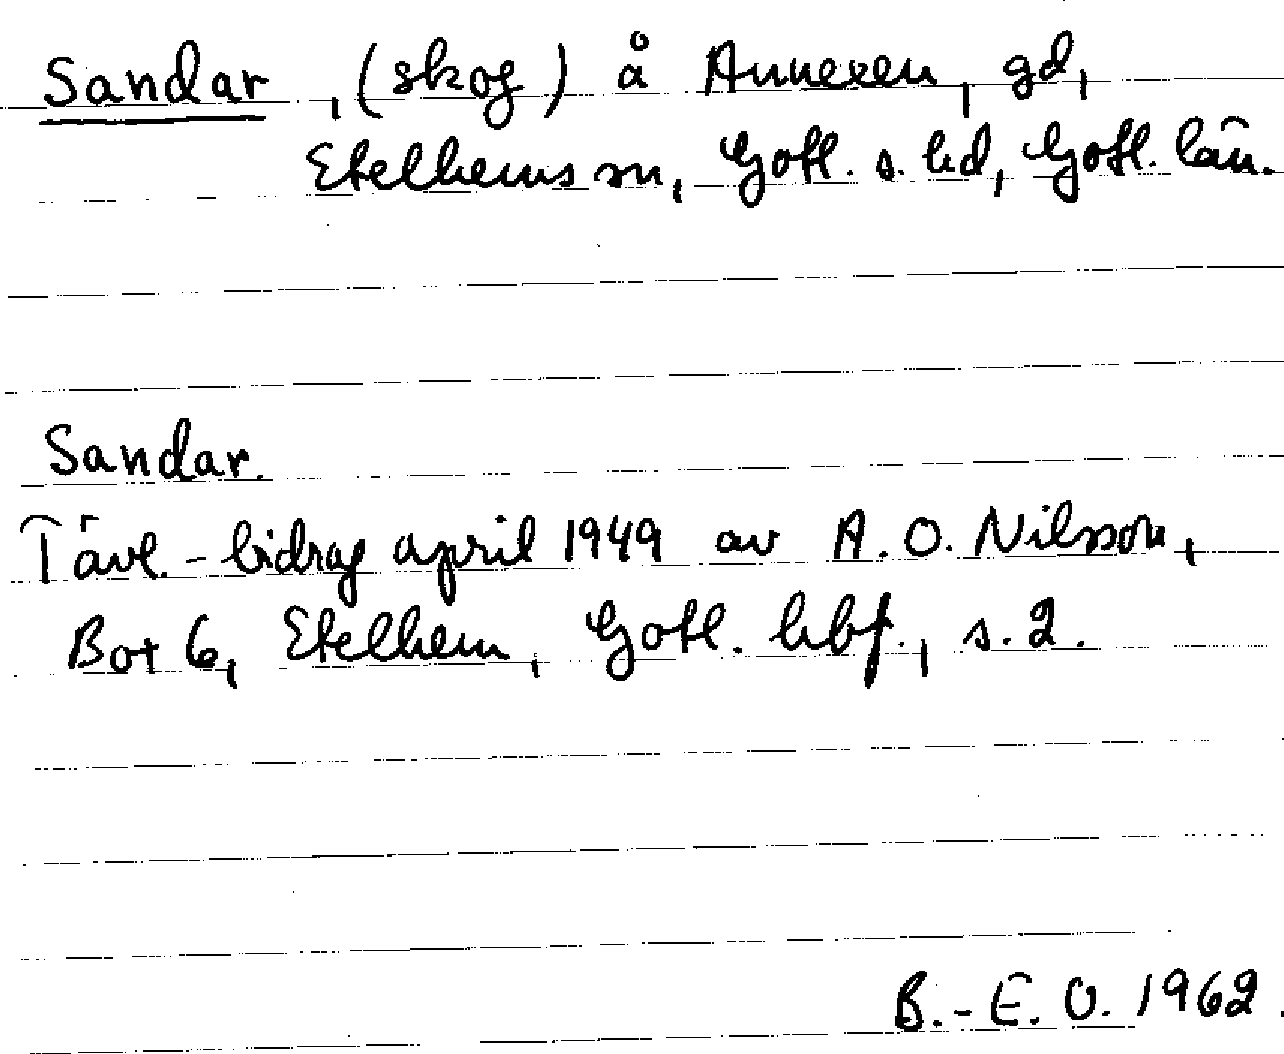 Sandar, (skog) å Annexen, gd,
Etelhems sn, Gotl. s. hd, Gotl. län.
Sandar.
Tävl.-bidrag april 1949 av A. O. Nilsson,
Box 6, Etelhem, Gotl. hbf., s. 2.
B.-E. O. 1962.